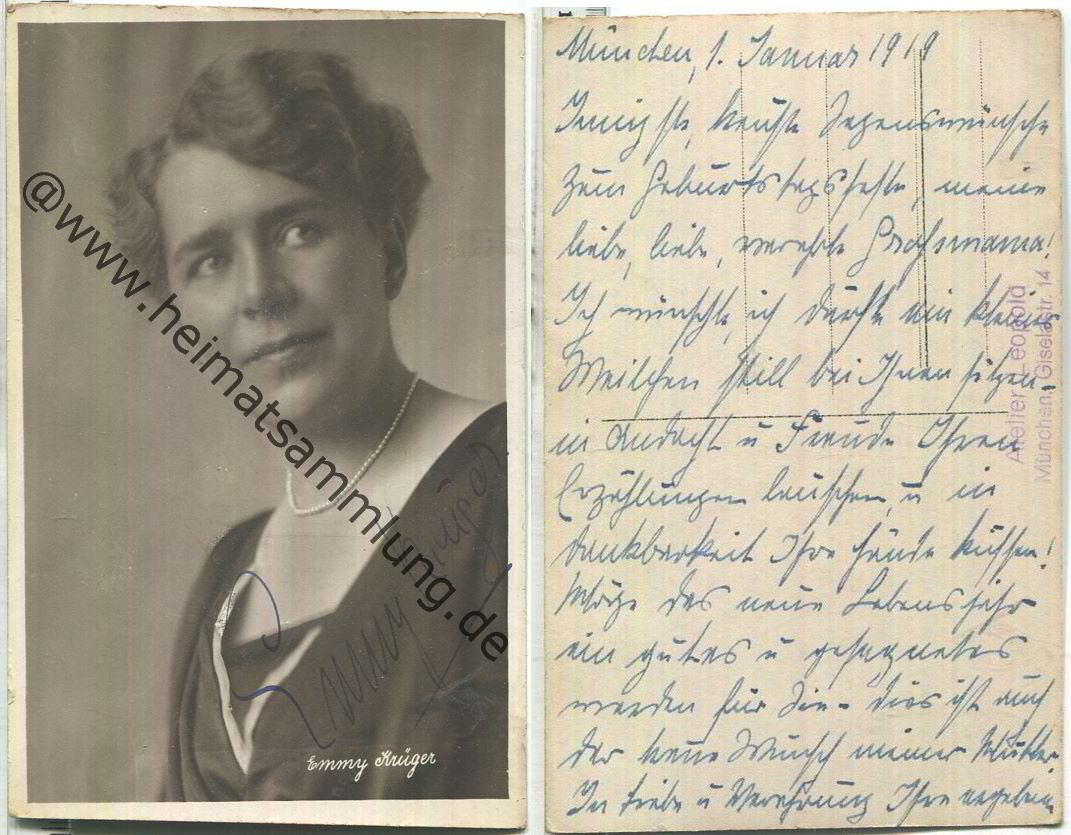 @www.heimatsammlung.de
Emmy Krüger
Emmy Krüger
München, 1. Januar 1919
Innigste, treuste Segenswünsche
zum Geburtstagsfeste, meine
liebe, liebe, verehrte Großmama!
Ich wünschte, ich dürfte ein kleines
Weilchen still bei Ihnen sitzen -
in Andacht u Freude Ihren
Erzählungen lauschen u in
Dankbarkeit Ihre Hände küssen!
Möge das neue Lebensjahr
ein gutes u gesegnetes
werden für Sie - dies ist auch
der treue Wunsch meiner Mutter.
In Liebe u Verehrung Ihre ergebene
Atelier Leopold
München, Giselastr. 14